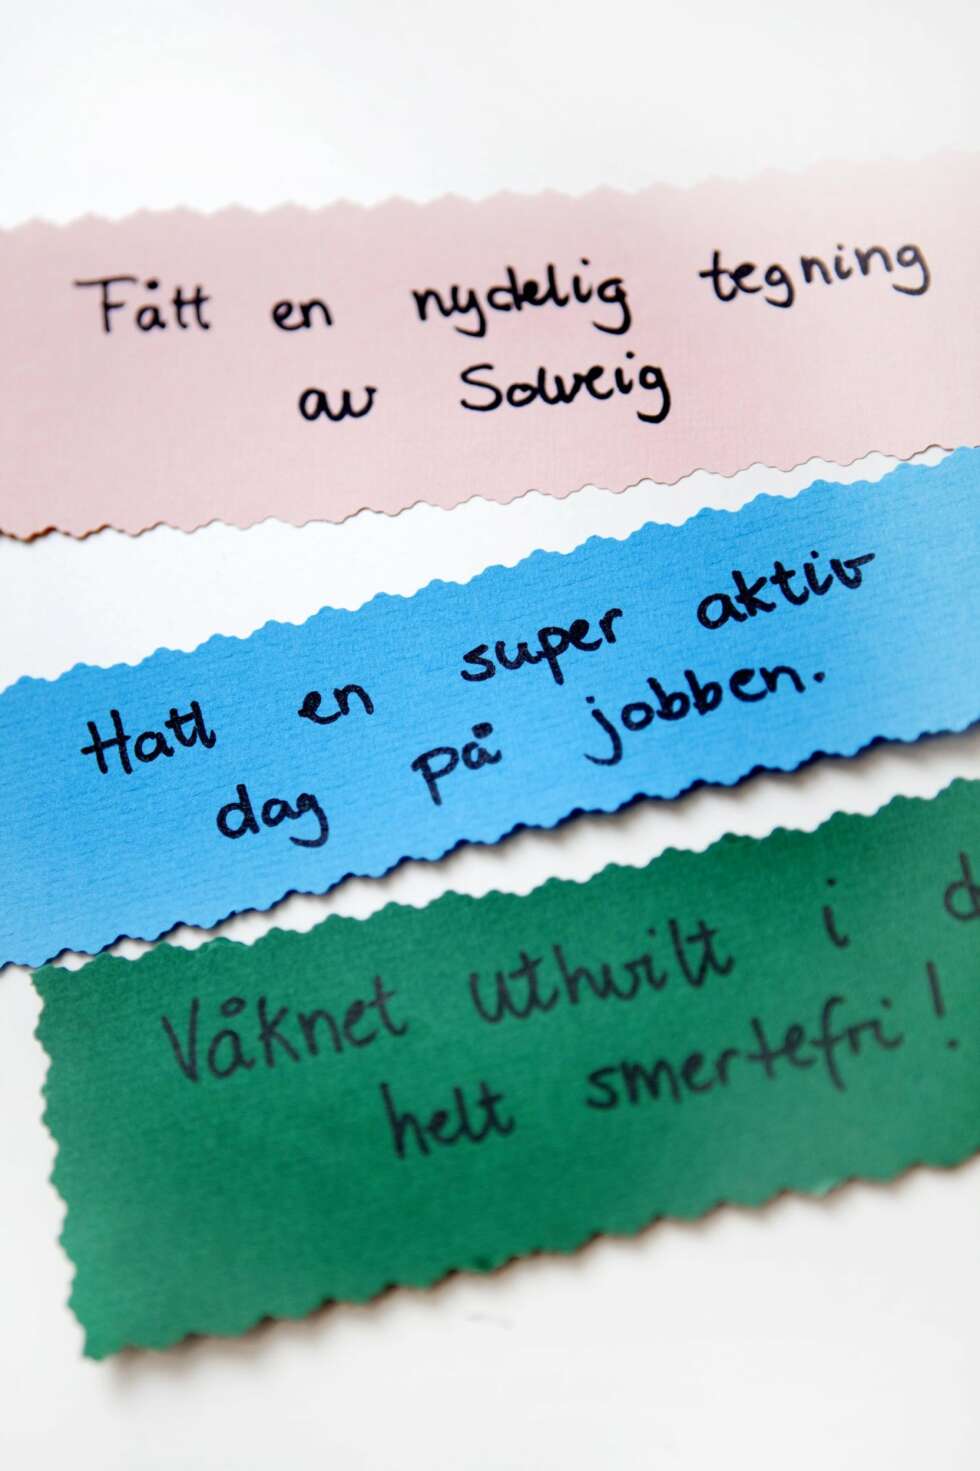 Fått en nydelig tegning
av Solveig
Hatt en super aktiv
dag på jobben.
Våknet uthvilt i
helt smertefri!